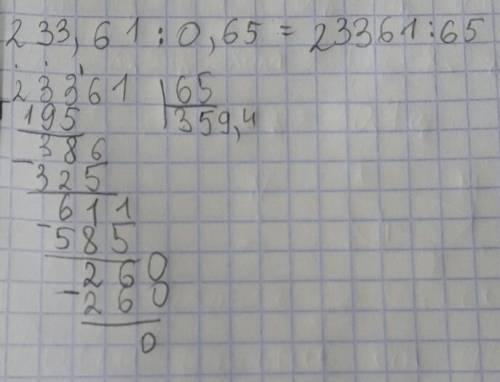 233,61 : 0,65 = 23361 : 65
23361 65
195 359,4
386
- 325
611
- 585
260
- 260
0